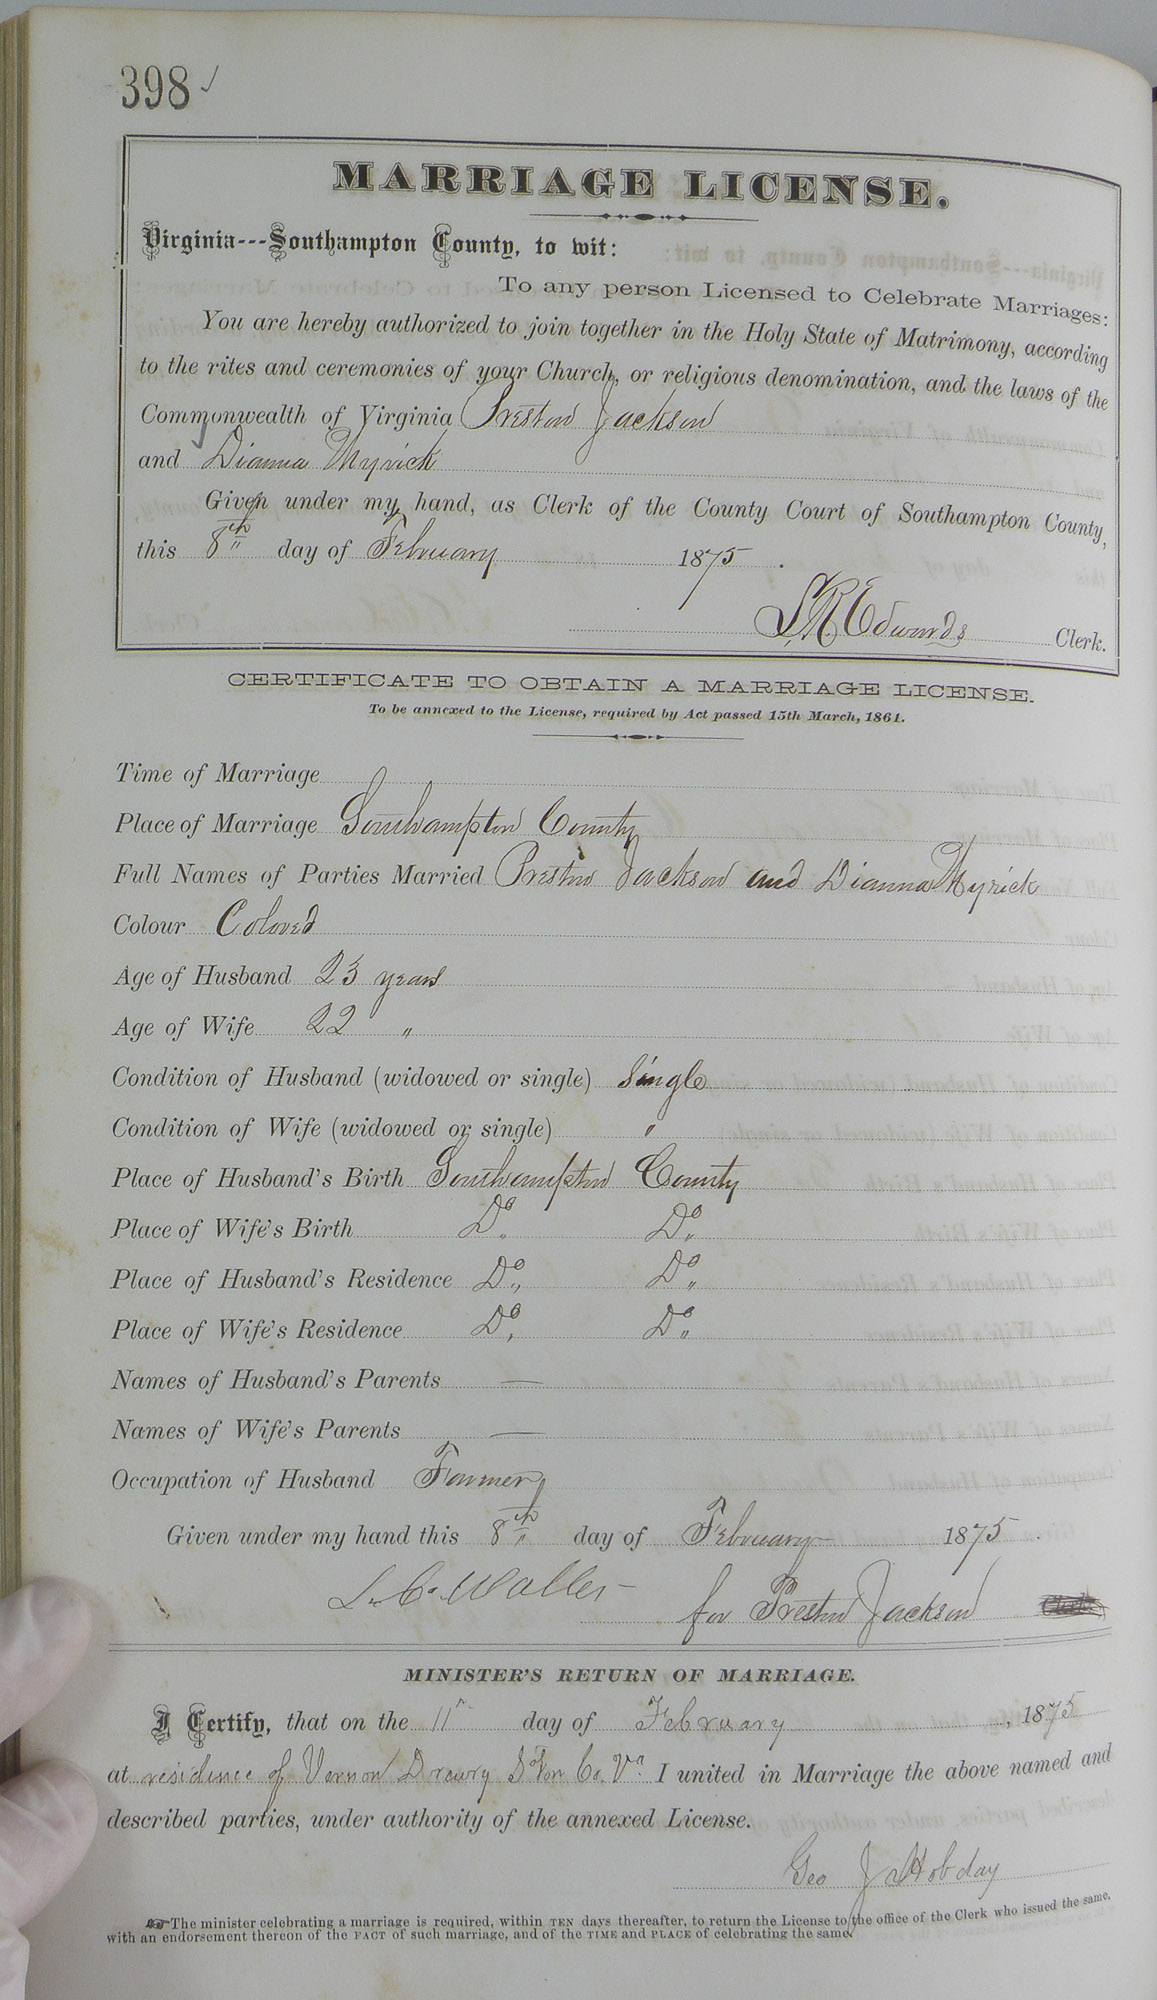 398 ✓
MARRIAGE LICENSE.
Virginia---Southampton County, to wit:
To any person Licensed to Celebrate Marriages:
You are hereby authorized to join together in the Holy State of Matrimony, according
to the rites and ceremonies of your Church, or religious denomination, and the laws of the
Commonwealth of Virginia Preston Jackson
and Dianna Myrick
Given under my hand, as Clerk of the County Court of Southampton County,
this 8th day of February 1875.
L.R. Edwards Clerk.
CERTIFICATE TO OBTAIN A MARRIAGE LICENSE.
To be annexed to the License, required by Act passed 15th March, 1861.
Time of Marriage
Place of Marriage Southampton County
Full Names of Parties Married Preston Jackson and Dianna Myrick
Colour Colored
Age of Husband 23 years
Age of Wife 22 "
Condition of Husband (widowed or single) Single
Condition of Wife (widowed or single) "
Place of Husband's Birth Southampton County
Place of Wife's Birth Do Do
Place of Husband's Residence Do Do
Place of Wife's Residence Do Do
Names of Husband's Parents —
Names of Wife's Parents —
Occupation of Husband Farmer
Given under my hand this 8th day of February 1875.
L. C. Waller for Preston Jackson
MINISTER'S RETURN OF MARRIAGE.
I Certify, that on the 11th day of February, 1875
at residence of Vernon Drewry S'ton Co. Va I united in Marriage the above named and
described parties, under authority of the annexed License.
Geo J Hobday
☞The minister celebrating a marriage is required, within TEN days thereafter, to return the License to the office of the Clerk who issued the same,
with an endorsement thereon of the FACT of such marriage, and of the TIME and PLACE of celebrating the same.